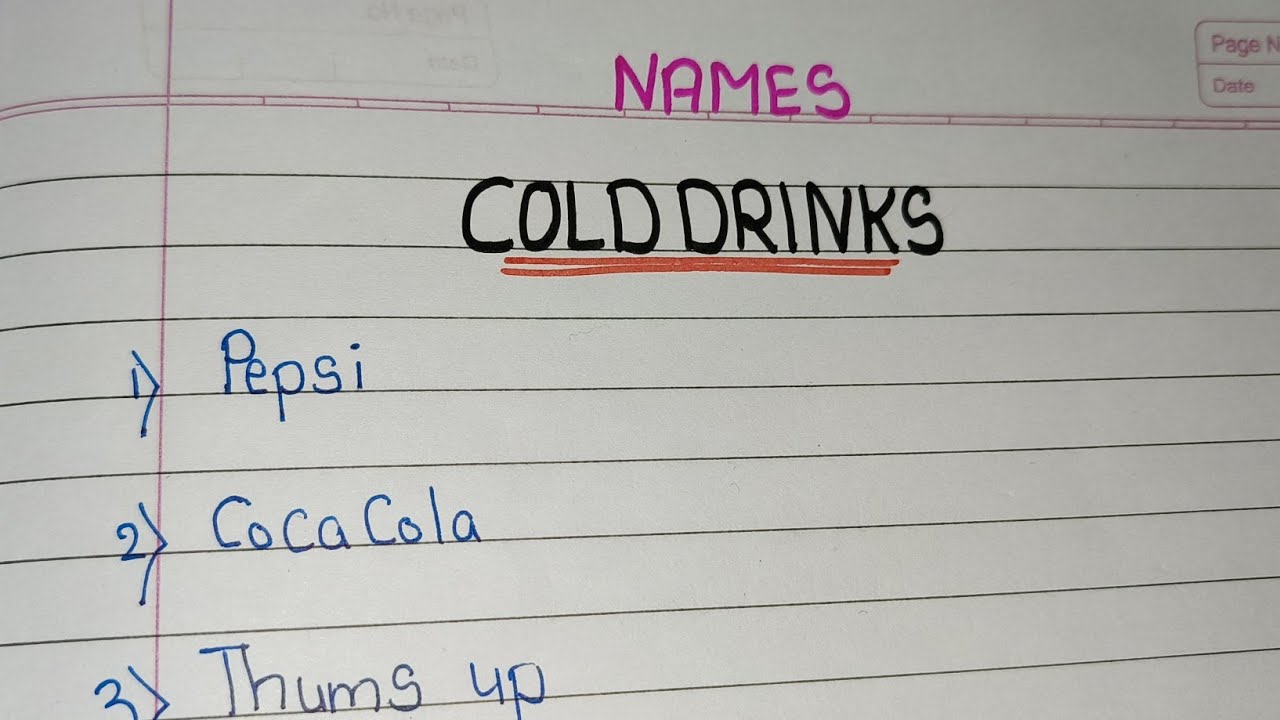 Page N
Date
NAMES
COLD DRINKS
1) Pepsi
2) Coca Cola
3) Thums up